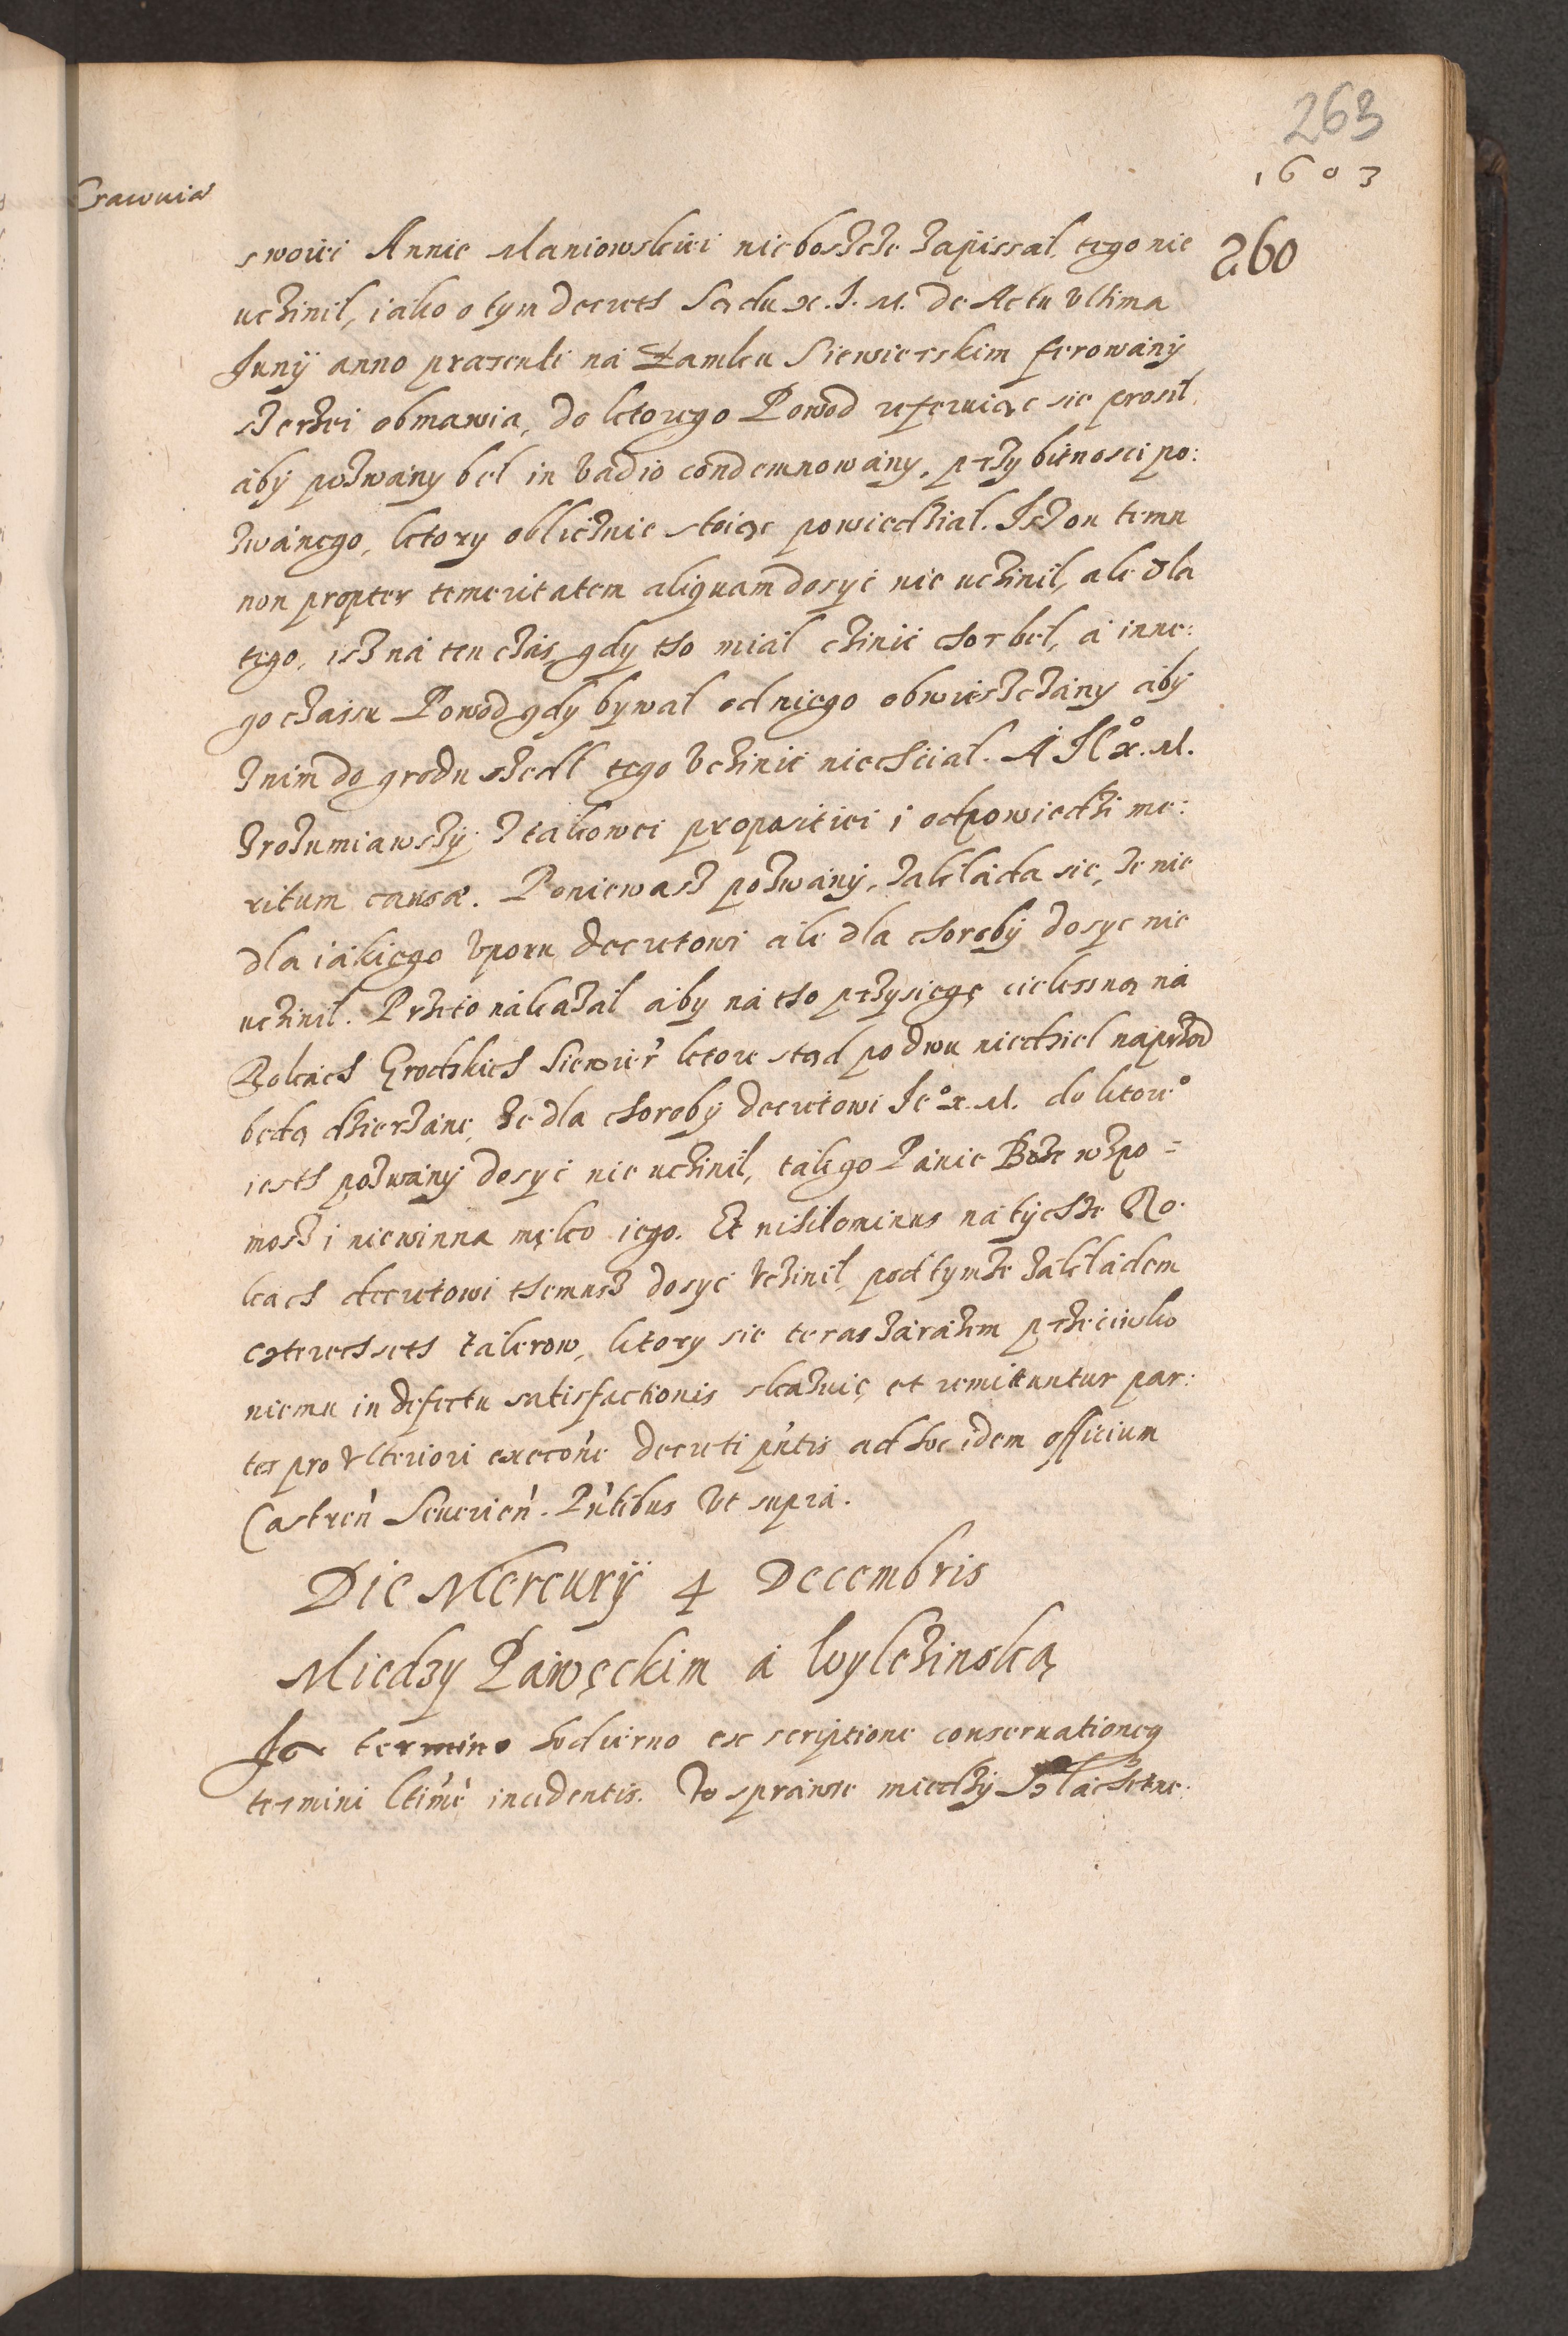 263
1603
Cracouia
260
swoiei Annie Maniowskiei nieboszcze zapissal, tego nie
uczinil, iako o tym decreth Sądu x. J. M. de Actu Vltima
Junÿ anno præsenti ná Zamku Siewierskim ferowány
szerzei obmawia, do ktorego Powod referuiąc sie prosil,
áby pozwány bel in vadio condemnowány, przy bitnosci po:
zwánego, ktory obliċznie stoiąc powiedzial. Isz on temu
non propter temeritatem aliquam dosyċ nie uczinil, ale dla
tego, isz ná ten czás gdy tho miál czinic chor bel, á inne:
go czassu Powod gdy bywal od niego obwieszczány áby
z nim do grodu szedl tego vczinic niechcial. A Jć x. M.
zrozumiawszy z takowei propositiei i odpowiedzi me:
ritum causæ. Poniewasz pozwány, zaklada sie, że nie
dla iákiego vporu decretowi ale dla choroby dosyc nie
uczinil. Przeto nákazál áby ná tho przysięgę cielessną ná
Rokach Grodzkich Siewier̃ ktore stąd po dwu niedziel naprzod
będą dzierżane, że dla choroby decretowi Je° x. M. do ktore°
iesth pozwány dosyċ nie uczinil, ták go Pánie Boże wspo=
mosz i niewinna męko iego. Et nihilominus ná tychże Ro
kach decretowi themusz dosyċ vczinil, pod tymże zakládem
czterechseth talerow, ktory sie teras zárázem przeciwko
niemu in defectu satisfactionis skazuie, et remittuntur par:
tes pro vlteriori execoñe decreti pñtis ad hoc idem officium
Castreñ Seuerieñ. Pñtibus vt supra.
Die Mercurÿ 4 Decembris
Miedzy Páwęckim á Wylczinską
In termino hodierno ex scriptione conseruationeq
termini ltimė incidentis. W sprawie miedzy Szláchetne: